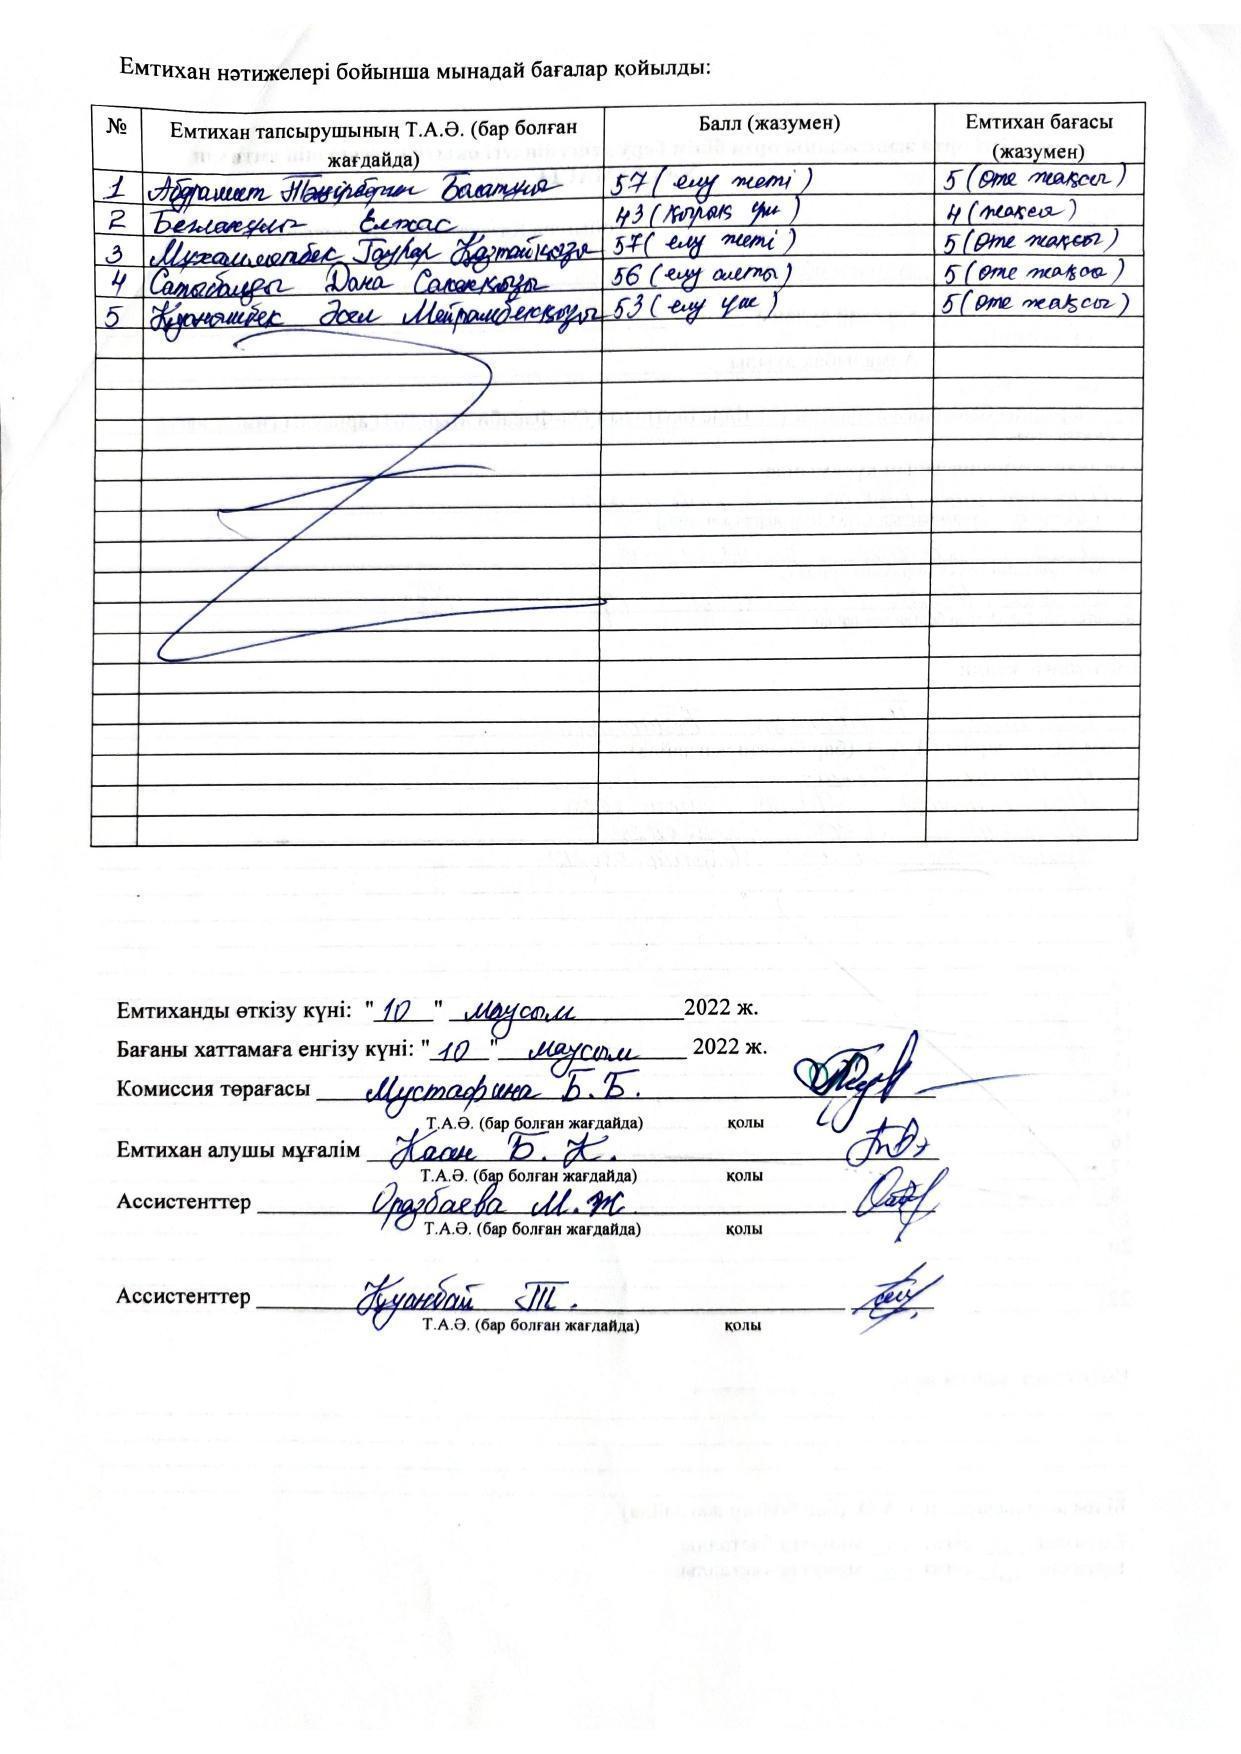 Емтихан нәтижелері бойынша мынадай бағалар қойылды:
№ Емтихан тапсырушының Т.А.Ә. (бар болған жағдайда) Балл (жазумен) Емтихан бағасы (жазумен)
1 57 (елу жеті) 5 (өте жақсы)
2 Елжас 43 (қырық үш) 4 (жақсы)
3 Мухамметбек Гаухар 57 (елу жеті) 5 (өте жақсы)
4 Сатыбалды Дана 56 (елу алты) 5 (өте жақсы)
5 Әсел Мейрамбекқызы 53 (елу үш) 5 (өте жақсы)
Емтиханды өткізу күні: "10" маусым 2022 ж.
Бағаны хаттамаға енгізу күні: "10" маусым 2022 ж.
Комиссия төрағасы Мустафина Б.Б.
Т.А.Ә. (бар болған жағдайда) қолы
Емтихан алушы мұғалім Б. К.
Т.А.Ә. (бар болған жағдайда) қолы
Ассистенттер Оразбаева М.Ж
Т.А.Ә. (бар болған жағдайда) қолы
Ассистенттер Қуанбай Т.
Т.А.Ә. (бар болған жағдайда) қолы